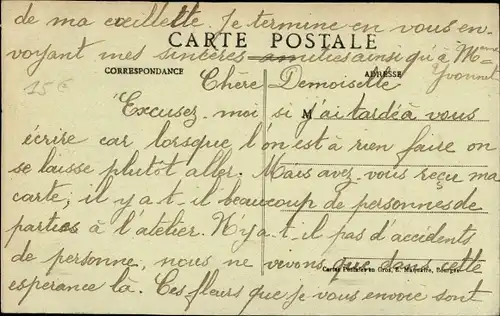 de ma cœillette. Je termine en vous en-
voyant mes sincères amitiés ainsi qu'à Mme
Yvonne
CARTE POSTALE
CORRESPONDANCE
ADRESSE
15€
Chère Demoiselle
Excusez-moi si j'ai tardé à vous
M
écrire car lorsque l'on est à rien faire on
se laisse plutôt aller. Mais avez-vous reçu ma
carte, il y a-t-il beaucoup de personnes de
parties à l'atelier. N'y a-t-il pas d'accidents
de personne, nous ne vivons que dans cette
Cartes Postales en Gros, E. Bourges.
esperance la. Ces fleurs que je vous envoie sont